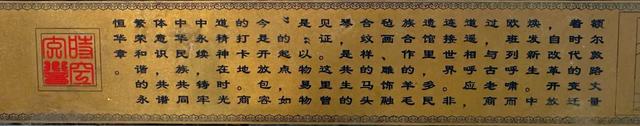 额尔敦路丈量
着时代的变迁
，自改革开放
焕发新生。中
欧班列呼啸而
过，与古老商
道遥相呼应，
连接世界。非
遗会馆里，民
族毡
合纹样、马头
琴，是共生的
见证。这里曾
是以物易物
的起点，如
今是开放包容
的打卡地。商
道精神在时光
中永续，铸牢
中华民族共同
体意识，共
繁荣和谐的永
恒华章。